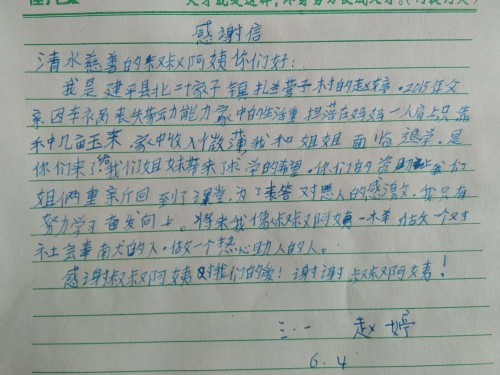 感谢信
清水慈善的叔叔阿姨你们好：
我是建平县北二十家子镇扎兰营子村的赵婷。2015年父
亲因车祸丧失劳动能力家中的生活重担落在妈妈一人肩上只靠
种几亩玉米 家中收入微薄我和姐姐面临退学。是
你们来了给我们姐妹带来了求学的希望。你们的资助让我们
姐俩重新回到了课堂，为了表答对恩人的感激，我只有
努力学习奋发向上。将来我像叔叔阿姨一样 做一个对
社会事有大的人。做一个热心助人的人。
感谢叔叔阿姨对我们的爱！谢谢叔叔阿姨！
三.一 赵婷
6.4